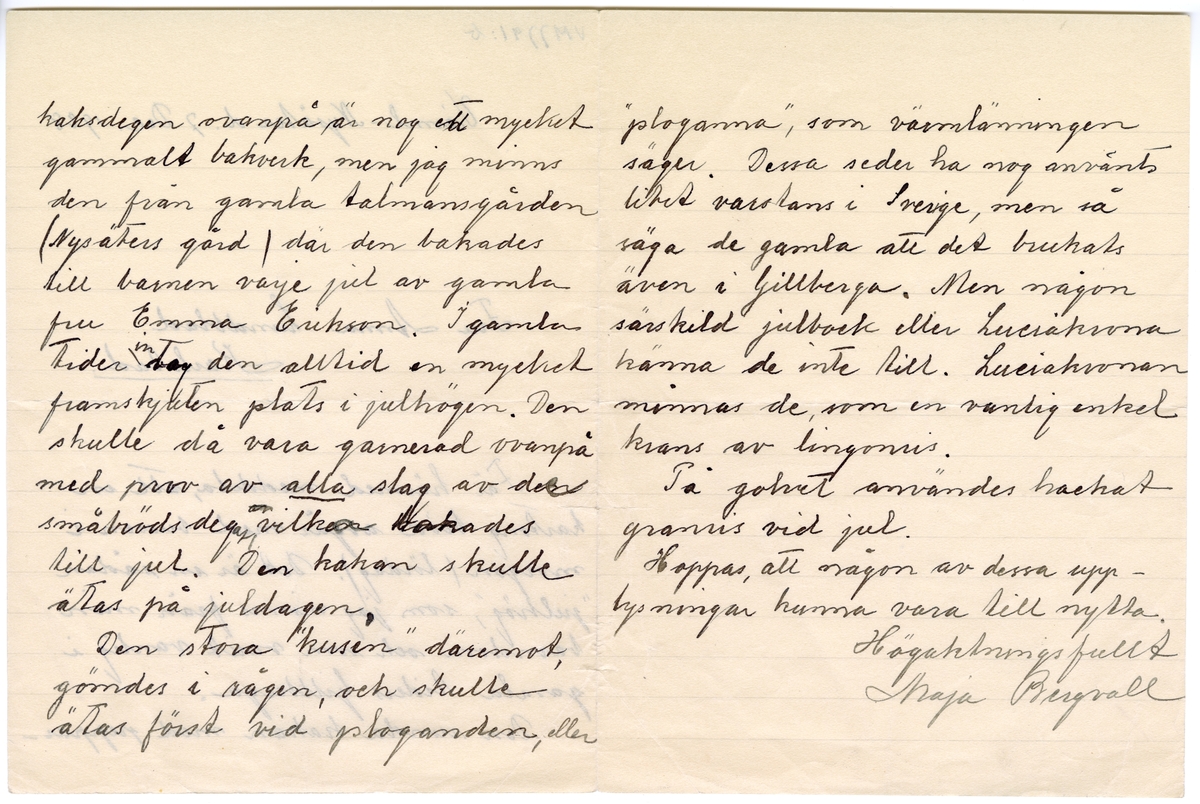 kaksdegen ovanpå är nog ett mycket
gammalt bakverk, men jag minns
den från gamla talmansgården
(Nysäters gård) där den bakades
till barnen varje jul av gamla
fru Emma Erikson. I gamla
tider intog den alltid en mycket
framskjuten plats i julhögen. Den
skulle då vara garnerad ovanpå
med prov av alla slag av den
småbrödsdeg, vilken bakades
till jul. Den kakan skulle
ätas på juldagen,
Den stora "kusen" däremot,
gömdes i rågen, och skulle
ätas först vid ploganden, eller
"ploganna", som värmlänningen
säger. Dessa seder ha nog använts
litet varstans i Sverige, men så
säga de gamla att det brukats
även i Gillberga. Men någon
särskild julbock eller Luciakrona
känna de inte till. Luciakronan
minnas de, som en vanlig enkel
krans av lingonris.
På golvet användes hackat
granris vid jul.
Hoppas, att någon av dessa upp-
lysningar kunna vara till nytta.
Högaktningsfullt
Maja Bergvall